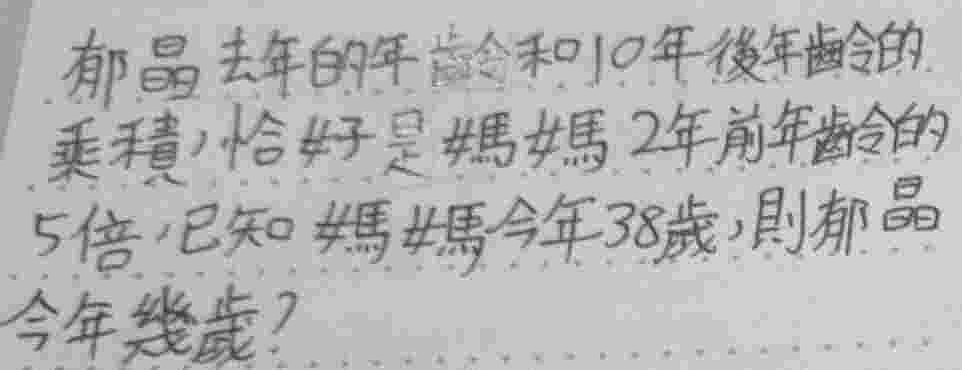 郁晶去年的年齡和10年後年齡的
乘積,恰好是媽媽2年前年齡的
5倍,已知媽媽今年38歲,則郁晶
今年幾歲?